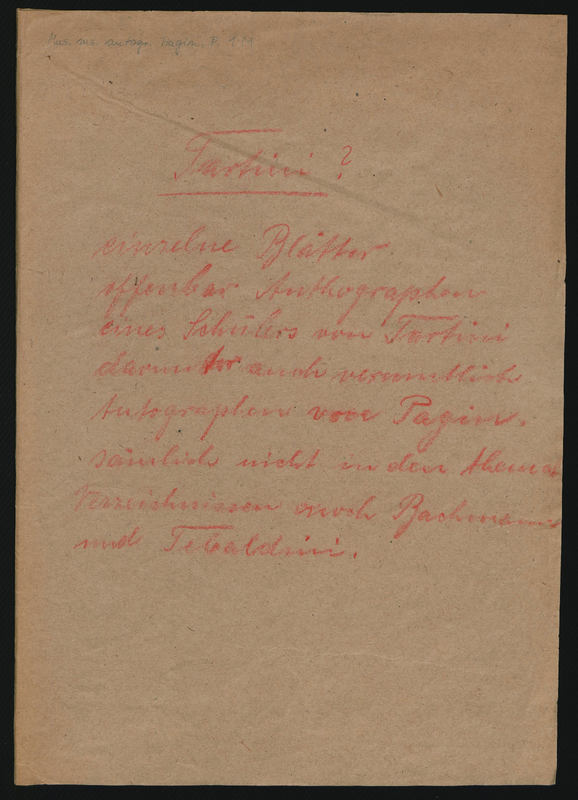 Mus. ms. autogr. Pagin, F. 1 M
Tartini ?
einzelne Blätter
offenbar Authographen
eines Schülers von Tartini
darunter auch vermutlich
Autographen von Pagin.
sämtlich nicht in den themat
Verzeichnissen noch Bachmann
und Tebaldini.